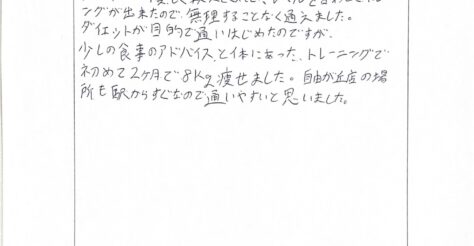 ングが出来たので、無理することなく通えました。
ダイエットが目的で通いはじめたのですが、
少しの食事のアドバイスと体にあった、トレーニングで
初めて2ヶ月で8Kg痩せました。自由が丘店の場
所も駅からすぐなので通いやすいと思いました。